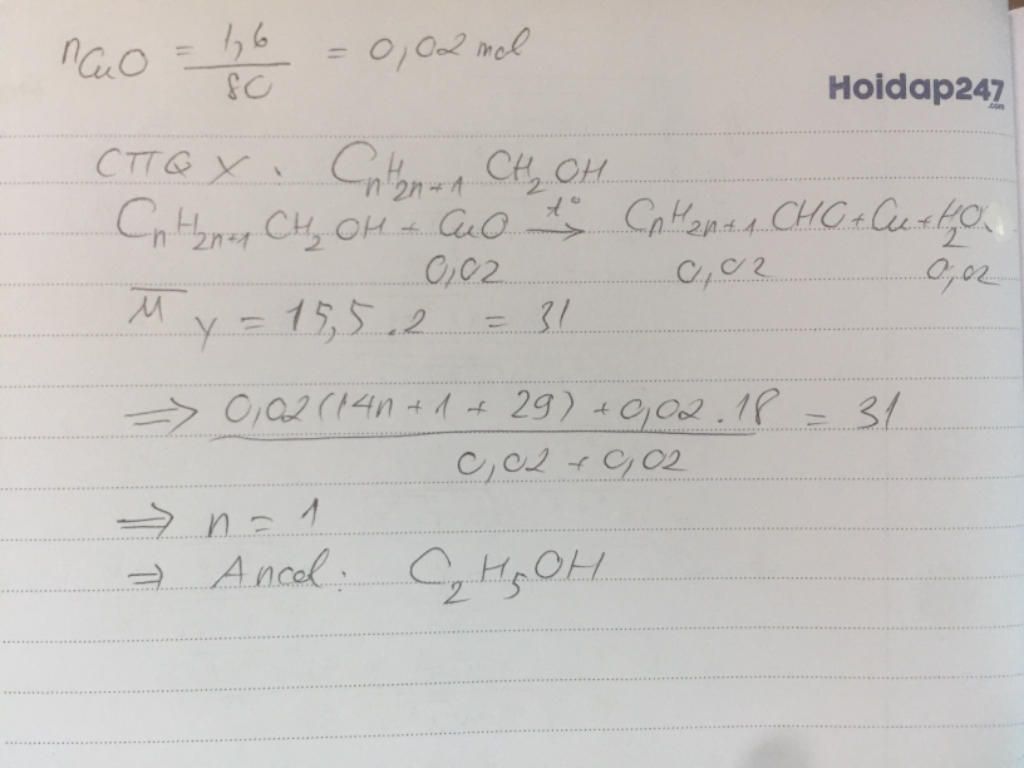 nCuO = 1,6 / 80 = 0,02 mol
Hoidap247
.com
CTTQ X : CnH2n+1 CH2OH
CnH2n+1 CH2OH + CuO t° → CnH2n+1 CHO + Cu + H2O
0,02 0,02 0,02
M̅ Y = 15,5 . 2 = 31
⇒ 0,02(14n + 1 + 29) + 0,02 . 18 / 0,02 + 0,02 = 31
⇒ n = 1
⇒ Ancol : C2H5OH